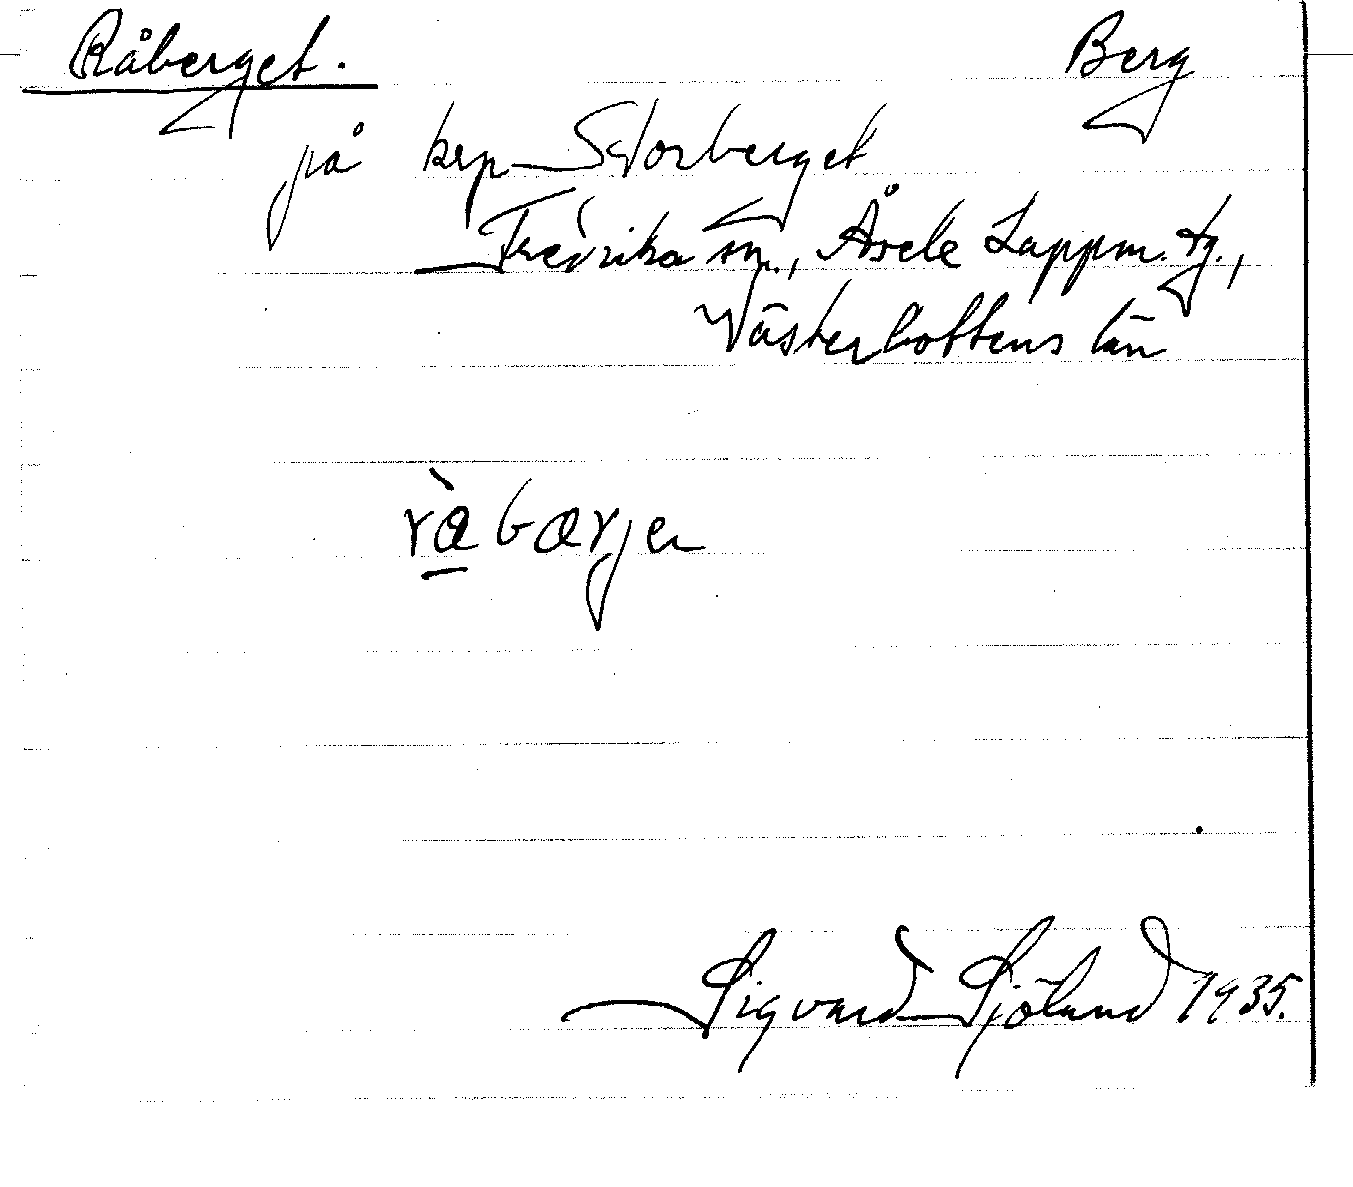 Råberget. Berg
på krp Storberget
Fredrika sn., Åsele Lappm. tg.,
Västerbottens län
rå̀bærjen
Sigvard Sjölund 1935.